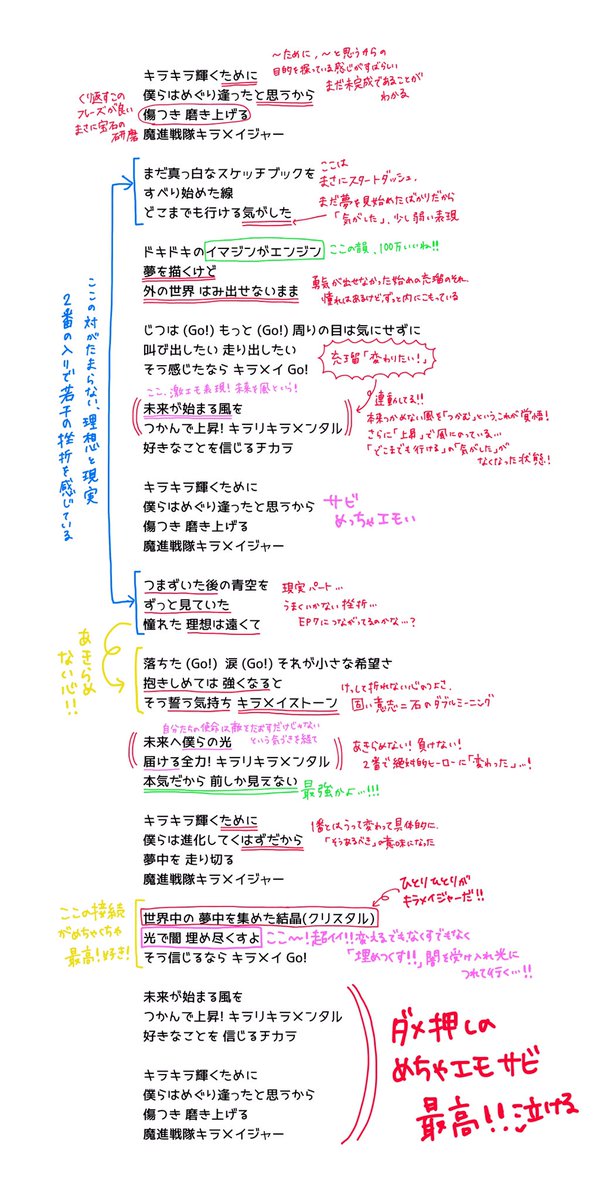 キラキラ輝くために
僕らはめぐり逢ったと思うから
傷つき 磨き上げる
魔進戦隊キラメイジャー
〜ために、〜と思うからの
目的を探っている感じがすばらしい
まだ未完成であることが
わかる
くり返すこの
フレーズが良い
まさに宝石の
研磨
まだ真っ白なスケッチブックを
すべり始めた線
どこまでも行ける気がした
ここは
まさにスタートダッシュ、
まだ夢を見始めたばかりだから
「気がした」、少し弱い表現
ドキドキのイマジンがエンジン
夢を描くけど
外の世界 はみ出せないまま
ここの韻、100万いいね!!
勇気が出せなかった始めの充瑠のそれ、
憧れはあるけど、ずっと内にこもっている
じつは (Go!) もっと (Go!) 周りの目は気にせずに
叫び出したい 走り出したい
そう感じたなら キラメイ Go!
充瑠「変わりたい!」
ここの対がたまらない、理想と現実
2番の入りで若干の挫折を感じている
ここ、激エモ表現!未来を風という!
未来が始まる風を
つかんで上昇! キラリキラメンタル
好きなことを信じるチカラ
連動してる!!
本来つかめない風を「つかむ」という、これが覚悟!
さらに「上昇」で風にのっている…
「どこまでも行ける」の「気がした」が
なくなった状態!
キラキラ輝くために
僕らはめぐり逢ったと思うから
傷つき 磨き上げる
魔進戦隊キラメイジャー
サビ
めっちゃエモい
つまずいた後の青空を
ずっと見ていた
憧れた 理想は遠くて
現実パート…
うまくいかない挫折…
EP7につながってるのかな…?
あきらめ
ない心!!
落ちた (Go!) 涙 (Go!) それが小さな希望さ
抱きしめては 強くなると
そう誓う気持ち キラメイストーン
けっして折れない心のつよさ、
固い意志=石のダブルミーニング
自分たちの使命は敵をたおすだけじゃない
という気づきを経て
未来へ僕らの光
届ける全力! キラリキラメンタル
本気だから 前しか見えない
あきらめない!負けない!
2番で絶対的ヒーローに「変わった」…!
最強かよ…!!!
キラキラ輝くために
僕らは進化してくはずだから
夢中を 走り切る
魔進戦隊キラメイジャー
1番とはうって変わって具体的に、
「そうあるべき」の意味になった
ひとりひとりが
キラメイジャーだ!!
ここの接続
がめちゃくちゃ
最高!好き!
世界中の 夢中を集めた結晶(クリスタル)
光で闇 埋め尽くすよ
そう信じるなら キラメイ Go!
ここ〜!超イイ!!変えるでもなくすでもなく
「埋めつくす!!」闇を受け入れ光に
つれて行く…!!
未来が始まる風を
つかんで上昇! キラリキラメンタル
好きなことを 信じるチカラ
キラキラ輝くために
僕らはめぐり逢ったと思うから
傷つき 磨き上げる
魔進戦隊キラメイジャー
ダメ押しの
めちゃエモサビ
最高!!泣ける